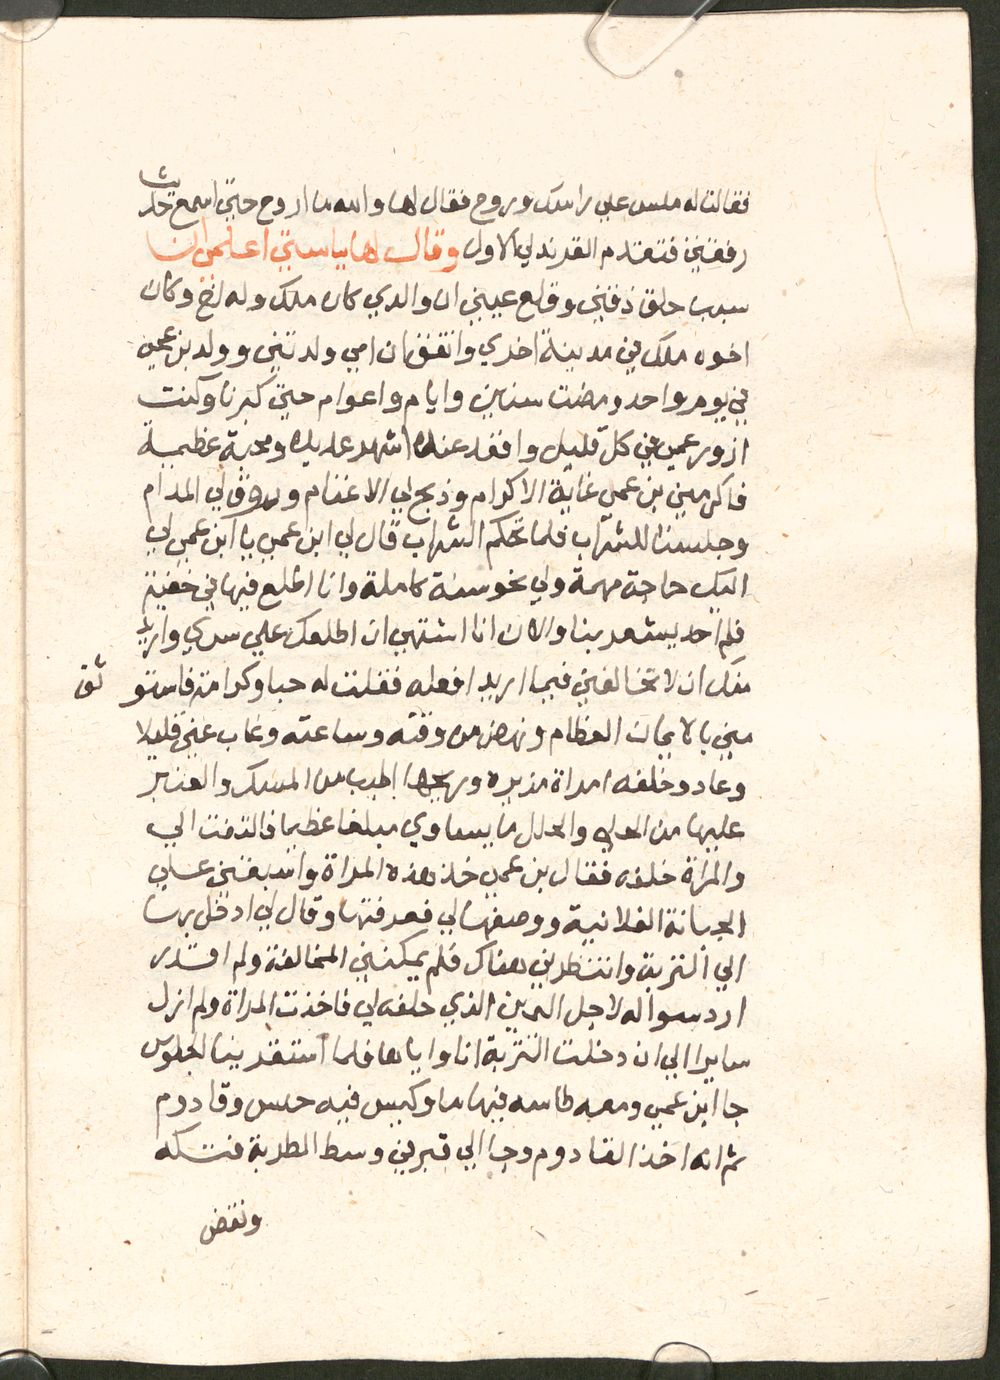 فقالت له ملس علي راسك وروح فقال لها والله ما اروح حتي اسمع حديث
رفقتي فتقدم القرندلي الاول وقال لها ياستي اعلمي ان
سبب حلق ذقني وقلع عيني ان والدي كان ملك وله اخ وكان
اخوه ملك في مدينة اخري واتفق ان امي ولدتني وولد بن عمي
في يوم واحد ومضت سنين وايام واعوام حتي كبرنا وكنت
ازور عمي في كل قليل واقعد عنده اشهد عديده ومحبة عظيمة
فاكرمني بن عمي غاية الاكرام وذبح لي الاغنام وروق لي المدام
وجلسنا للشراب فلما تحكم الشراب قال لي ابن عمي يا ابن عمي لي
اليك حاجة مهمة ولي نحو سنة كاملة وانا اطلع فيها في خفية
فلم احد يشعر بنا والان انا اشتهي ان اطلعك علي سري واريد
منك ان لا تخالفني فيما اريد افعله فقلت له حبا وكرامة فاستوثق
مني بالايمان العظام ونهض من وقته وساعته وغاب عني قليلا
وعاد وخلفه امراة مزيره وريحها اطيب من المسك والعنبر
عليها من الحلي والحلل ما يساوي مبلغا عظيما فالتفت الي
والمراة خلفه فقال بن عمي خذ هذه المراة واسبقني علي
الجبانة الفلانية ووصفها لي فعرفتها وقال لي ادخل بها
الي التربة وانتظرني هناك فلم يمكنني المخالفة ولم اقدر
ارد سواله لاجل اليمين الذي حلفه لي فاخذت المراة ولم ازل
سايرا الي ان دخلت التربة انا واياها فلما استقر بنا الجلوس
جا ابن عمي ومعه طاسه فيها ما وكيس فيه جبس وقادوم
ثم انه اخذ القادوم وجا الي قبر في وسط الطربة فتكه
ونقض